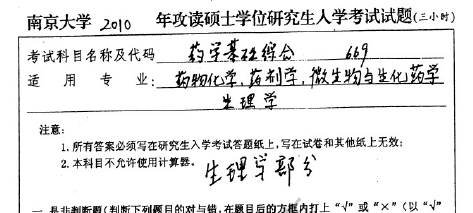 南京大学 2010 年攻读硕士学位研究生入学考试试题(三小时)
考试科目名称及代码 药学基础综合 669
适用专业: 药物化学,药剂学,微生物与生化药学
生理学
注意:
1.所有答案必须写在研究生入学考试答题纸上,写在试卷和其他纸上无效;
2.本科目不允许使用计算器。
生理学部分
一 是非判断题(判断下列题目的对与错,在题目后的方框内打上“√”或“×”(以“√”